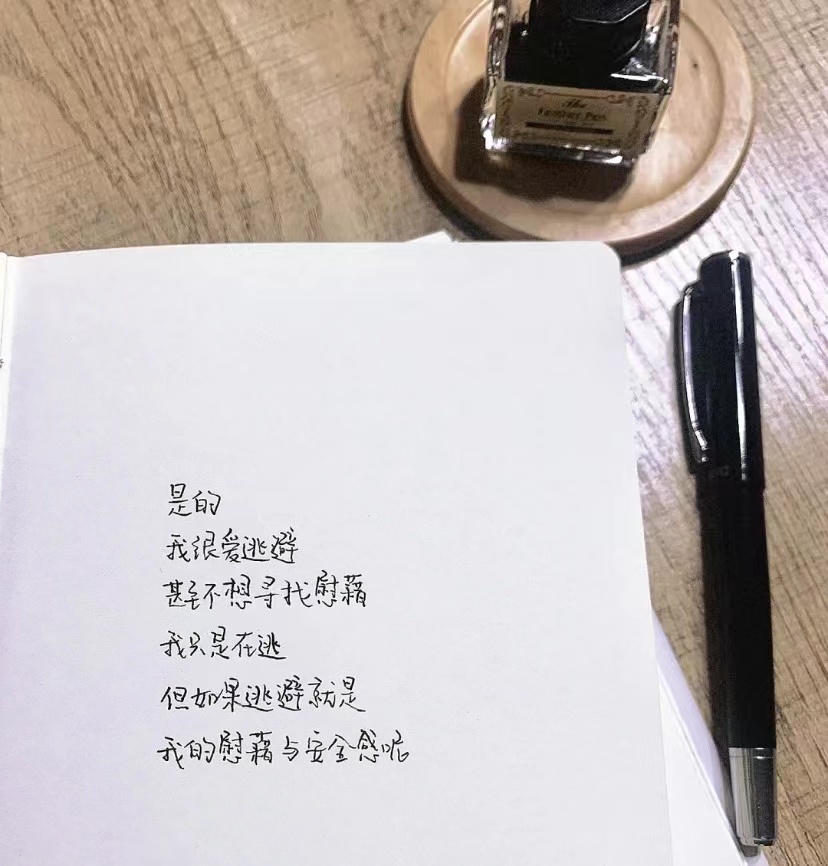 The
Feather Pen
是的
我很爱逃避
甚至不想寻找慰藉
我只是在逃
但如果逃避就是
我的慰藉与安全感呢